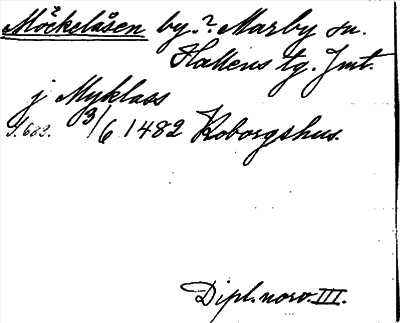 Möckelåsen by.? Marby sn.
Hallens tg. Jmt.
j Myklass
S. 682. 3/6 1482 Koborgshus.
Dipl. norv. III.